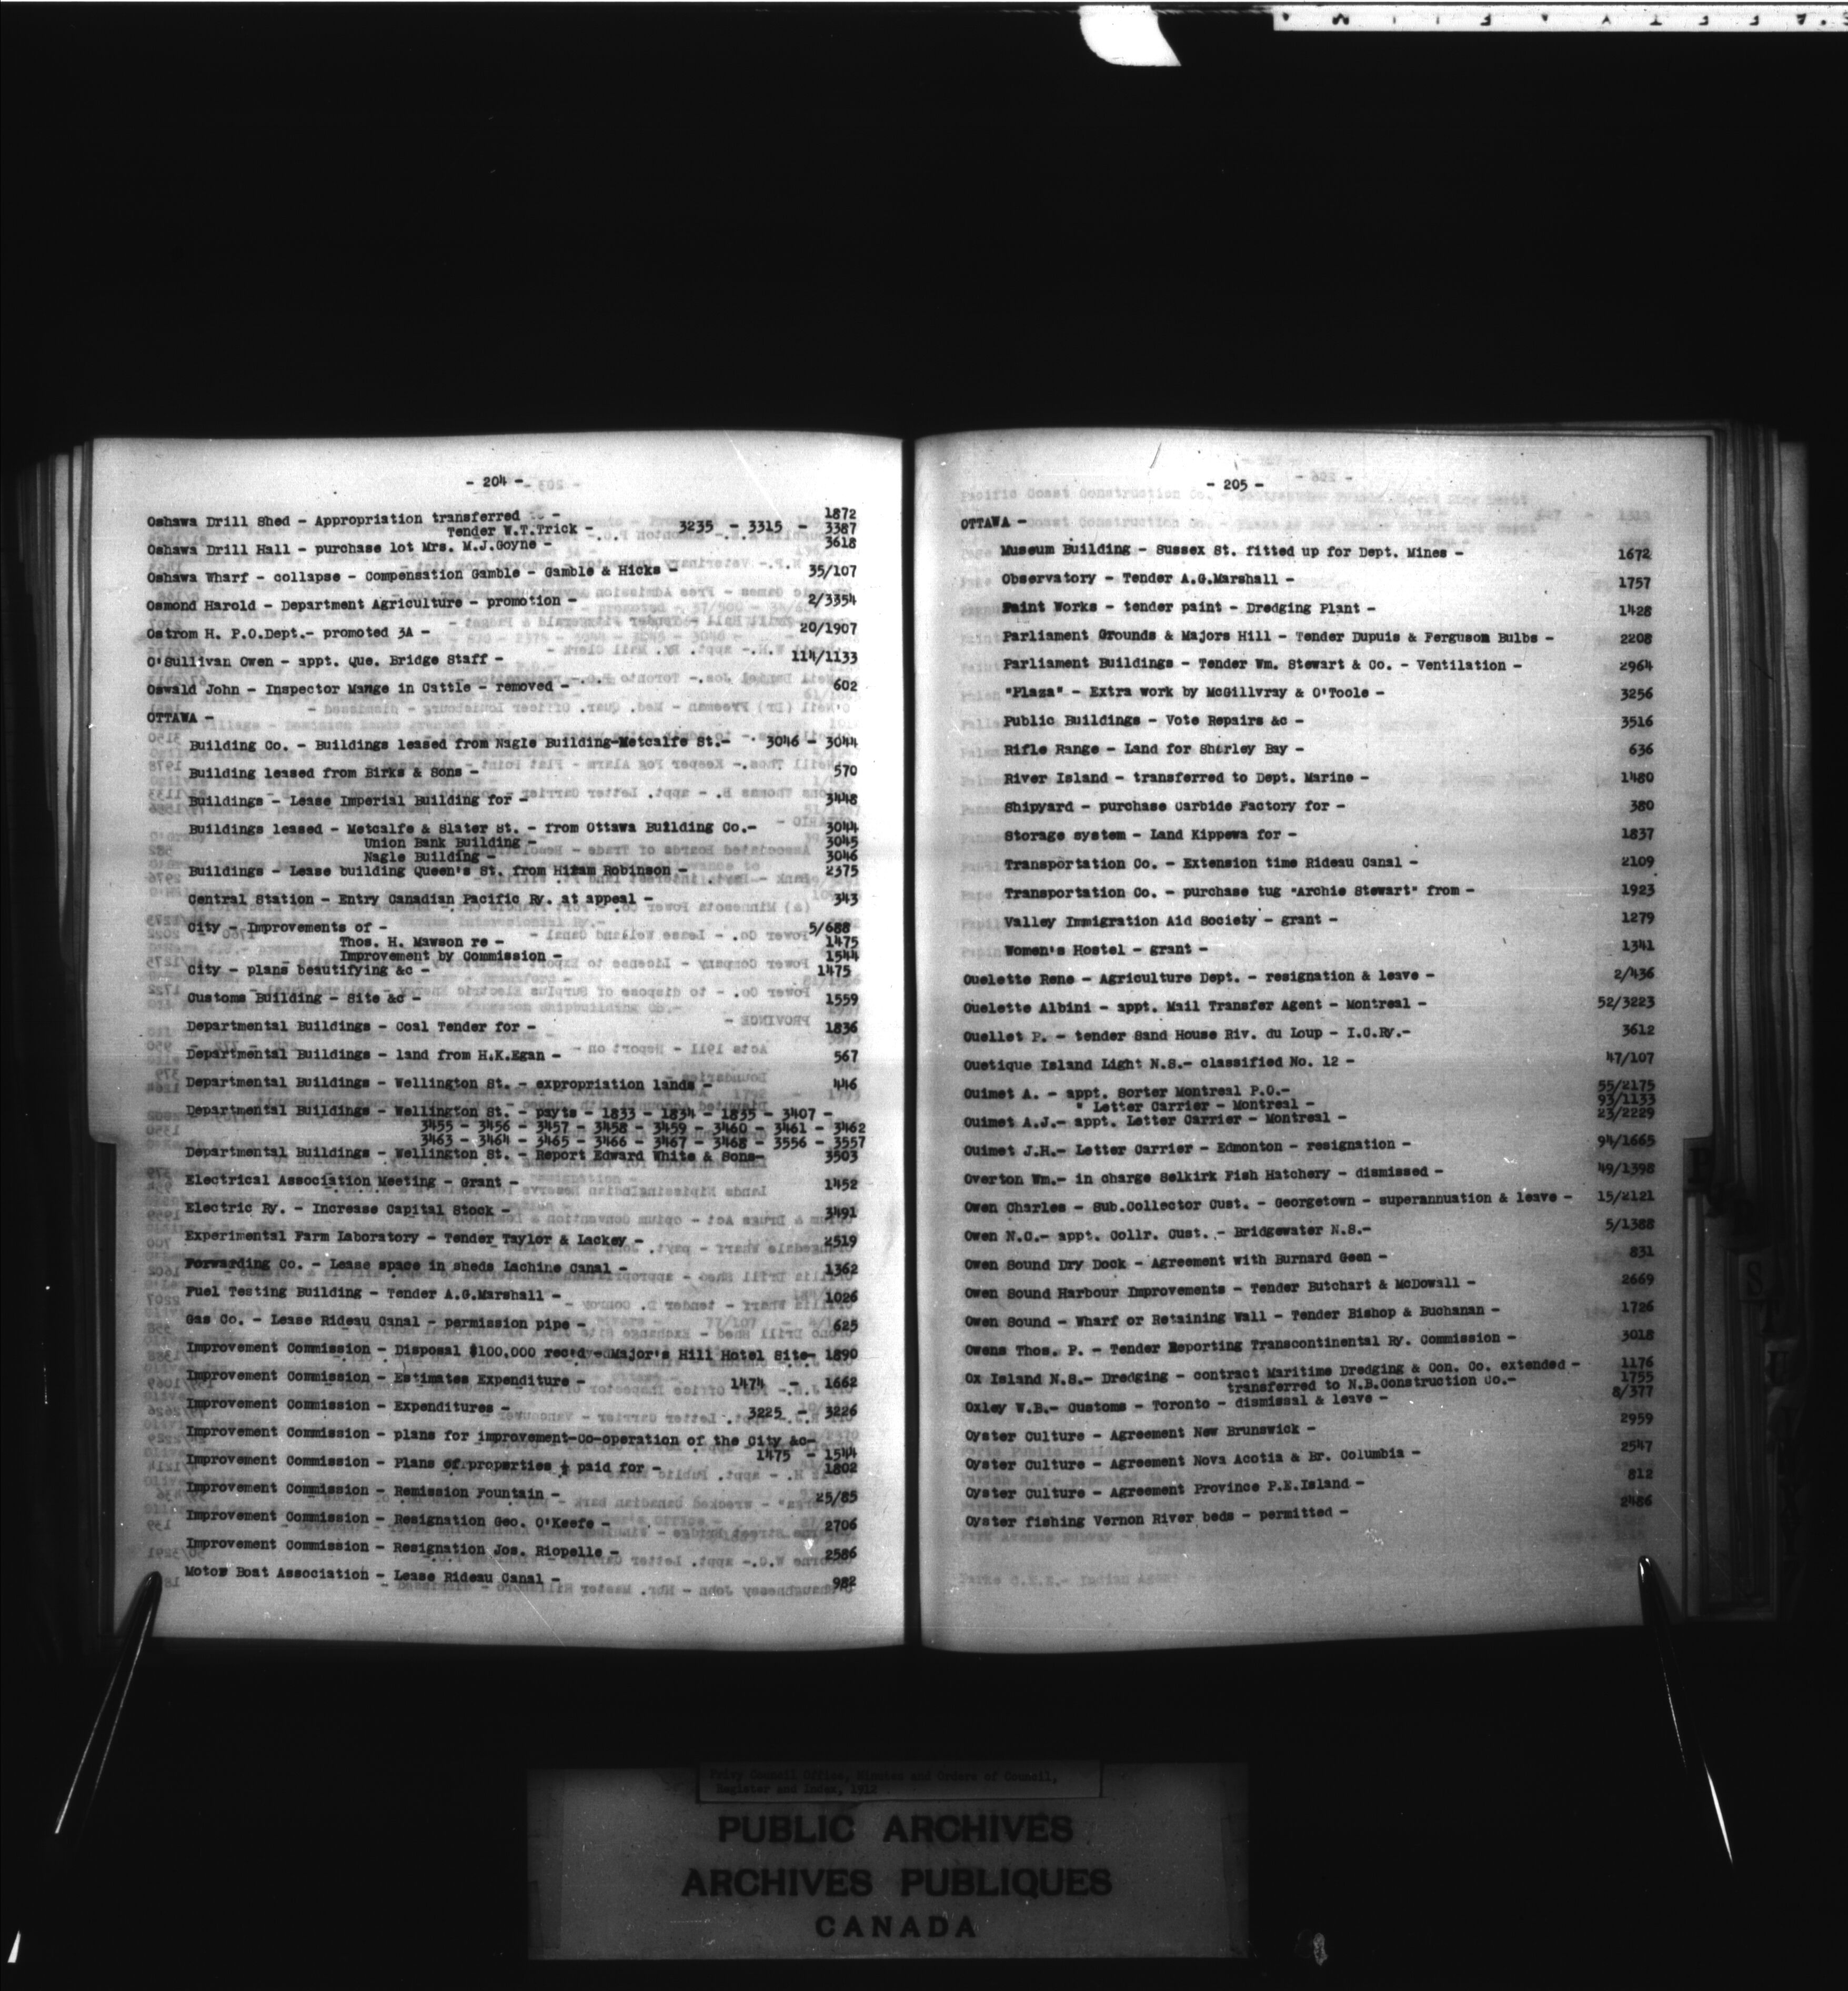 - 204 -
Oshawa Drill Shed - Appropriation transferred - 1872
Tender W.T.Trick - 3235 - 3315 - 3387
Oshawa Drill Hall - purchase lot Mrs. M.J.Goyne - 3618
Oshawa Wharf - collapse - Compensation Gamble - Gamble & Hicks - 35/107
Osmond Harold - Department Agriculture - promotion - 2/3354
Ostrom H. P.O.Dept.- promoted 3A - 20/1907
O'Sullivan Owen - appt. Que. Bridge Staff - 114/1133
Oswald John - Inspector Mange in Cattle - removed - 602
OTTAWA -
Building Co. - Buildings leased from Nagle Building-Metcalfe St.- 3046 - 3044
Building leased from Birks & Sons - 570
Buildings - Lease Imperial Building for - 3448
Buildings leased - Metcalfe & Slater St. - from Ottawa Building Co.- 3044
Union Bank Building - 3045
Nagle Building - 3046
Buildings - Lease building Queen's St. from Hiram Robinson - 2375
Central Station - Entry Canadian Pacific Ry. at appeal - 343
City - Improvements of - 5/688
Thos. H. Mawson re - 1475
Improvement by Commission - 1544
City - plans beautifying &c - 1475
Customs Building - Site &c - 1559
Departmental Buildings - Coal Tender for - 1836
Departmental Buildings - land from H.K.Egan - 567
Departmental Buildings - Wellington St. - expropriation lands - 446
Departmental Buildings - Wellington St. - payts - 1833 - 1834 - 1835 - 3407 -
3455 - 3456 - 3457 - 3458 - 3459 - 3460 - 3461 - 3462
3463 - 3464 - 3465 - 3466 - 3467 - 3468 - 3556 - 3557
Departmental Buildings - Wellington St. - Report Edward White & Sons- 3503
Electrical Association Meeting - Grant - 1452
Electric Ry. - Increase Capital Stock - 3491
Experimental Farm Laboratory - Tender Taylor & Lackey - 2519
Forwarding Co. - Lease space in sheds Lachine Canal - 1362
Fuel Testing Building - Tender A.G.Marshall - 1026
Gas Co. - Lease Rideau Canal - permission pipe - 625
Improvement Commission - Disposal $100,000 recd - Major's Hill Hotel Site- 1890
Improvement Commission - Estimates Expenditure - 1474 - 1662
Improvement Commission - Expenditures - 3225 - 3226
Improvement Commission - plans for improvement-Co-operation of the City &c-
1475 - 1544
Improvement Commission - Plans of properties & paid for - 1802
Improvement Commission - Remission Fountain - 25/85
Improvement Commission - Resignation Geo. O'Keefe - 2706
Improvement Commission - Resignation Jos. Riopelle - 2586
Motor Boat Association - Lease Rideau Canal - 982
- 205 -
OTTAWA -
Museum Building - Sussex St. fitted up for Dept. Mines - 1672
Observatory - Tender A.G.Marshall - 1757
Paint Works - tender paint - Dredging Plant - 1428
Parliament Grounds & Majors Hill - Tender Dupuis & Ferguson Bulbs - 2208
Parliament Buildings - Tender Wm. Stewart & Co. - Ventilation - 2964
"Plaza" - Extra work by McGillvray & O'Toole - 3256
Public Buildings - Vote Repairs &c - 3516
Rifle Range - Land for Shirley Bay - 636
River Island - transferred to Dept. Marine - 1480
Shipyard - purchase Carbide Factory for - 380
Storage system - Land Kippewa for - 1837
Transportation Co. - Extension time Rideau Canal - 2109
Transportation Co. - purchase tug "Archie Stewart" from - 1923
Valley Immigration Aid Society - grant - 1279
Women's Hostel - grant - 1341
Ouelette Rene - Agriculture Dept. - resignation & leave - 2/436
Ouelette Albini - appt. Mail Transfer Agent - Montreal - 52/3223
Ouellet P. - tender Sand House Riv. du Loup - I.C.Ry.- 3612
Ouetique Island Light N.S.- classified No. 12 - 47/107
Ouimet A. - appt. Sorter Montreal P.O.- 55/2175
" Letter Carrier - Montreal - 93/1133
Ouimet A.J.- appt. Letter Carrier - Montreal - 23/2229
Ouimet J.H.- Letter Carrier - Edmonton - resignation - 94/1665
Overton Wm.- in charge Selkirk Fish Hatchery - dismissed - 49/1398
Owen Charles - Sub.Collector Cust. - Georgetown - superannuation & leave - 15/2121
Owen N.C.- appt. Collr. Cust. - Bridgewater N.S.- 5/1388
Owen Sound Dry Dock - Agreement with Burnard Geen - 831
Owen Sound Harbour Improvements - Tender Butchart & McDowall - 2669
Owen Sound - Wharf or Retaining Wall - Tender Bishop & Buchanan - 1726
Owens Thos. P. - Tender Reporting Transcontinental Ry. Commission - 3018
Ox Island N.S.- Dredging - contract Maritime Dredging & Con. Co. extended - 1176
transferred to N.B.Construction Co.- 1755
Oxley W.B.- Customs - Toronto - dismissal & leave - 8/377
Oyster Culture - Agreement New Brunswick - 2959
Oyster Culture - Agreement Nova Acotia & Br. Columbia - 2547
Oyster Culture - Agreement Province P.E.Island - 812
Oyster fishing Vernon River beds - permitted - 2486
Privy Council Office, Minutes and Orders of Council,
Register and Index, 1912
PUBLIC ARCHIVES
ARCHIVES PUBLIQUES
CANADA